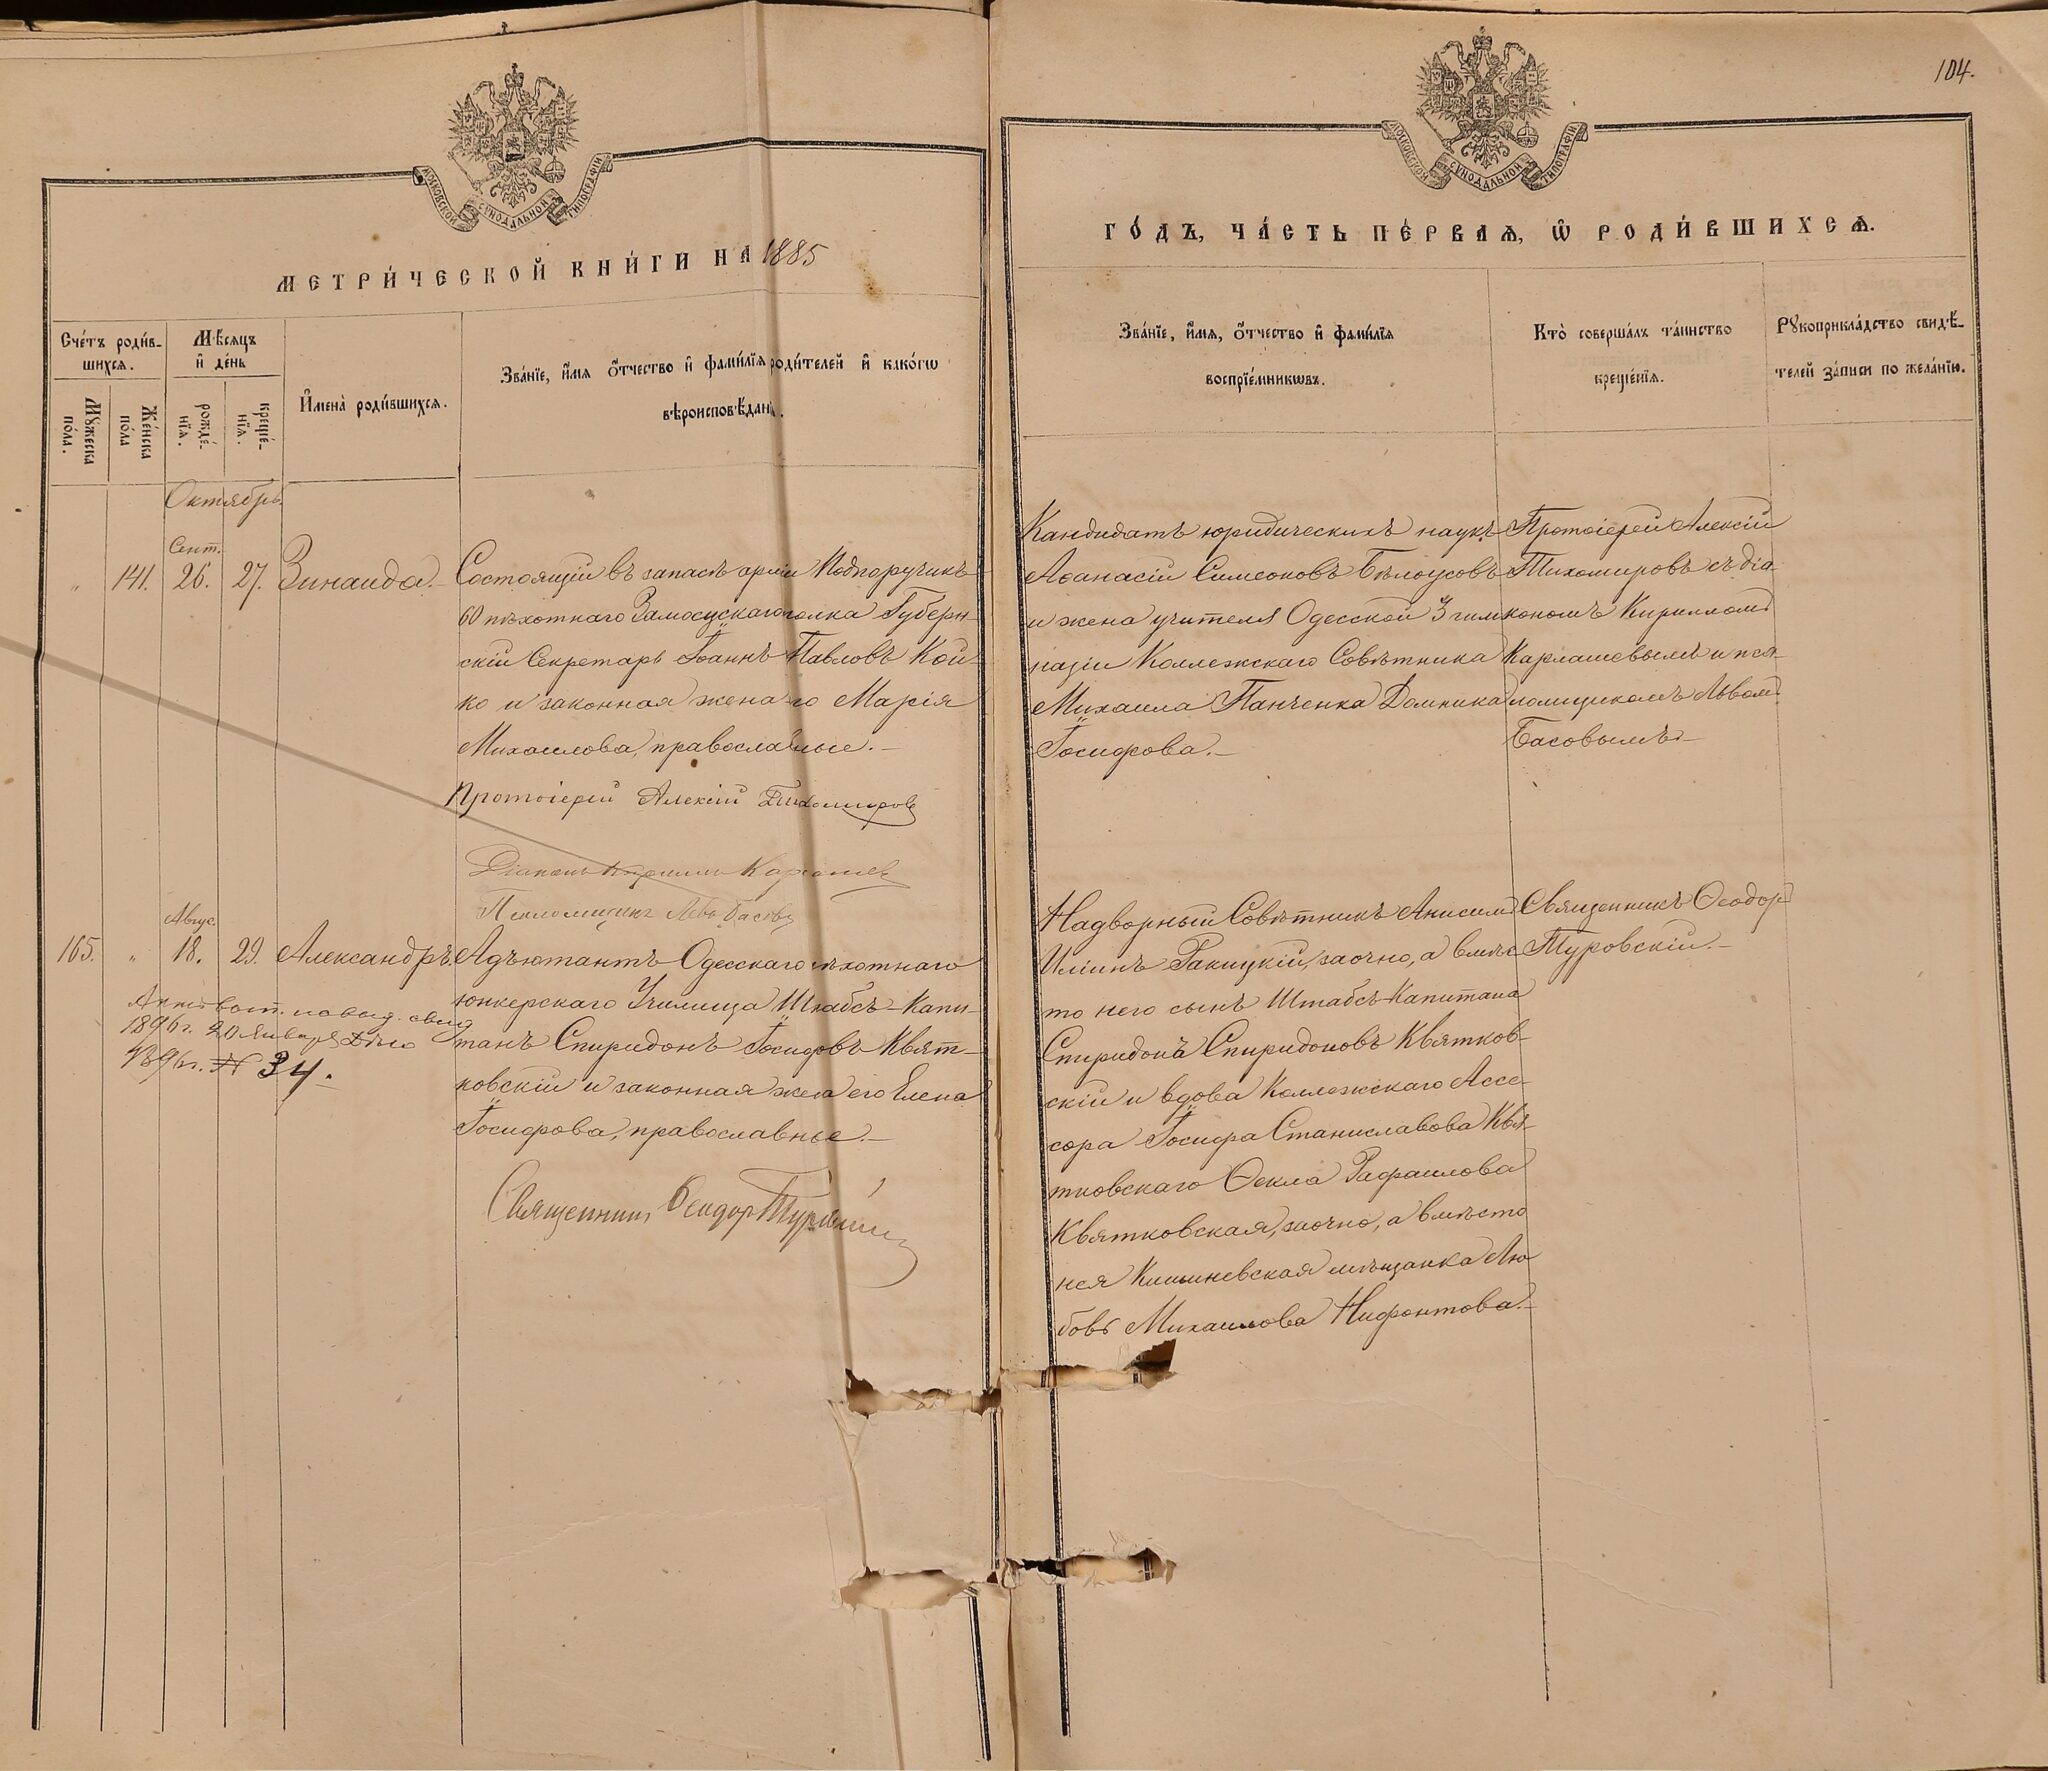 104.
МОСКОВСКОЙ СѴНОДАЛЬНОЙ ТИПОГРАФІИ
МОСКОВСКОЙ СѴНОДАЛЬНОЙ ТИПОГРАФІИ
МЕТРИ́ЧЕСКОЙ КНИ́ГИ НА 1885
ГО́ДЪ, ЧА́СТЬ ПЕ́РВАѦ, Ѡ РОДИ́ВШИХСѦ.
Сче́тъ роди́в-
шихсѧ.
Мꙋ́жеска
по́ла.
Же́нска
по́ла
Мѣ́сѧцъ
и҆ де́нь
рожде́-
нїѧ.
креще́-
нїѧ.
И҆мена̀ роди́вшихсѧ.
Зва́нїе, и҆́мѧ ѻ҆́тчество и҆ фами́лїѧ роди́телей и҆ како́гѡ
вѣроисповѣ́данї
Зва́нїе, и҆́мѧ, ѻ҆́тчество и҆ фами́лїѧ
воспрїе́мникѡвъ.
Кто̀ соверша́лъ та́инство
креще́нїѧ.
Рꙋкоприкла́дство свидѣ́-
телей за́писи по жела́нїю.
Октябрь.
Сент.
„ 141. 26. 27. Зинаида.
Состоящій въ запасѣ арміи Подпоручикъ
60 пѣхотнаго Замосцскаго полка Губерн-
скій Секретарь Іоаннъ Павловъ Кой-
ко и законная жена го Марія
Михаилова, православные.
Протоіерей Алексій Тихомировъ
Діаконъ Кириллъ Карлашев
Псаломщикъ Левъ Басовъ
Кандидатъ юридическихъ наукъ
Аѳанасій Симеоновъ Бѣлоусовъ
и жена учителя Одесской 3 гим
назіи Коллежскаго Совѣтника
Михаила Панченка Домника
Іосифова.
Протоіерей Алексій
Тихомировъ съ діа-
кономъ Кирилломъ
Карлашевымъ и пса-
ломщикомъ Львомъ
Басовымъ
Авгус.
165. „ 18. 29. Александръ.
1896 г. 20 Января Дѣло
1896 г. № 34.
Адъютантъ Одесскаго пѣхотнаго
юнкерскаго Училища Штабсъ-Капи-
танъ Спиридонъ Іосифовъ Квят-
ковскій и законная жена его Елена
Іосифова, православные.
Священник Ѳеодор Туровскій
Надворный Совѣтникъ Анисимъ
Иліинъ Ракицкій, заочно, а вмѣс
то него сынъ Штабсъ-Капитана
Спиридона Спиридоновъ Квятков-
скій и вдова Коллежскаго Ассе-
сора Іосифа Станиславова Квя-
тковскаго Ѳекла Рафаилова
Квятковская, заочно, а вмѣсто
нея Кишиневская мѣщанка Лю
бовь Михаилова Нифонтова.
Священникъ Ѳеодоръ
Туровскій.